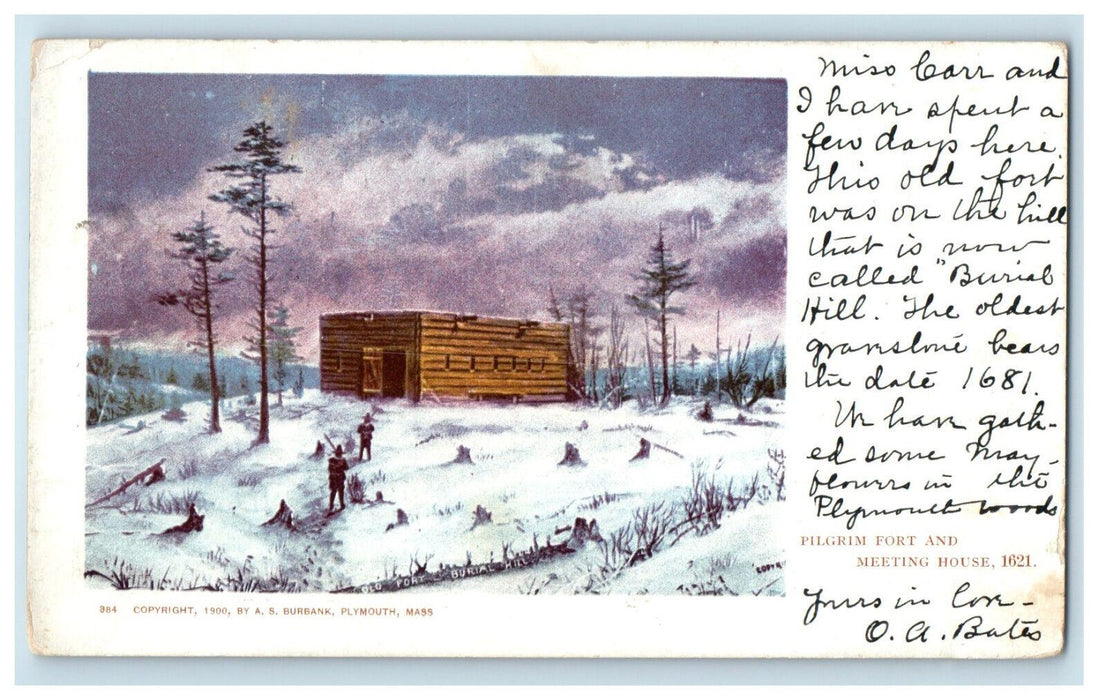 Miss Carr and
I have spent a
few days here.
This old fort
was on the hill
that is now
called "Burial
Hill. The oldest
gravestone bears
the date 1681.
We have gath-
ed some May-
flowers in the
Plymouth woods
PILGRIM FORT AND
MEETING HOUSE, 1621.
Yours in love -
O. A. Bates
OLD FORT BURIAL HILL
COPYR
984 COPYRIGHT, 1900, BY A. S. BURBANK, PLYMOUTH, MASS